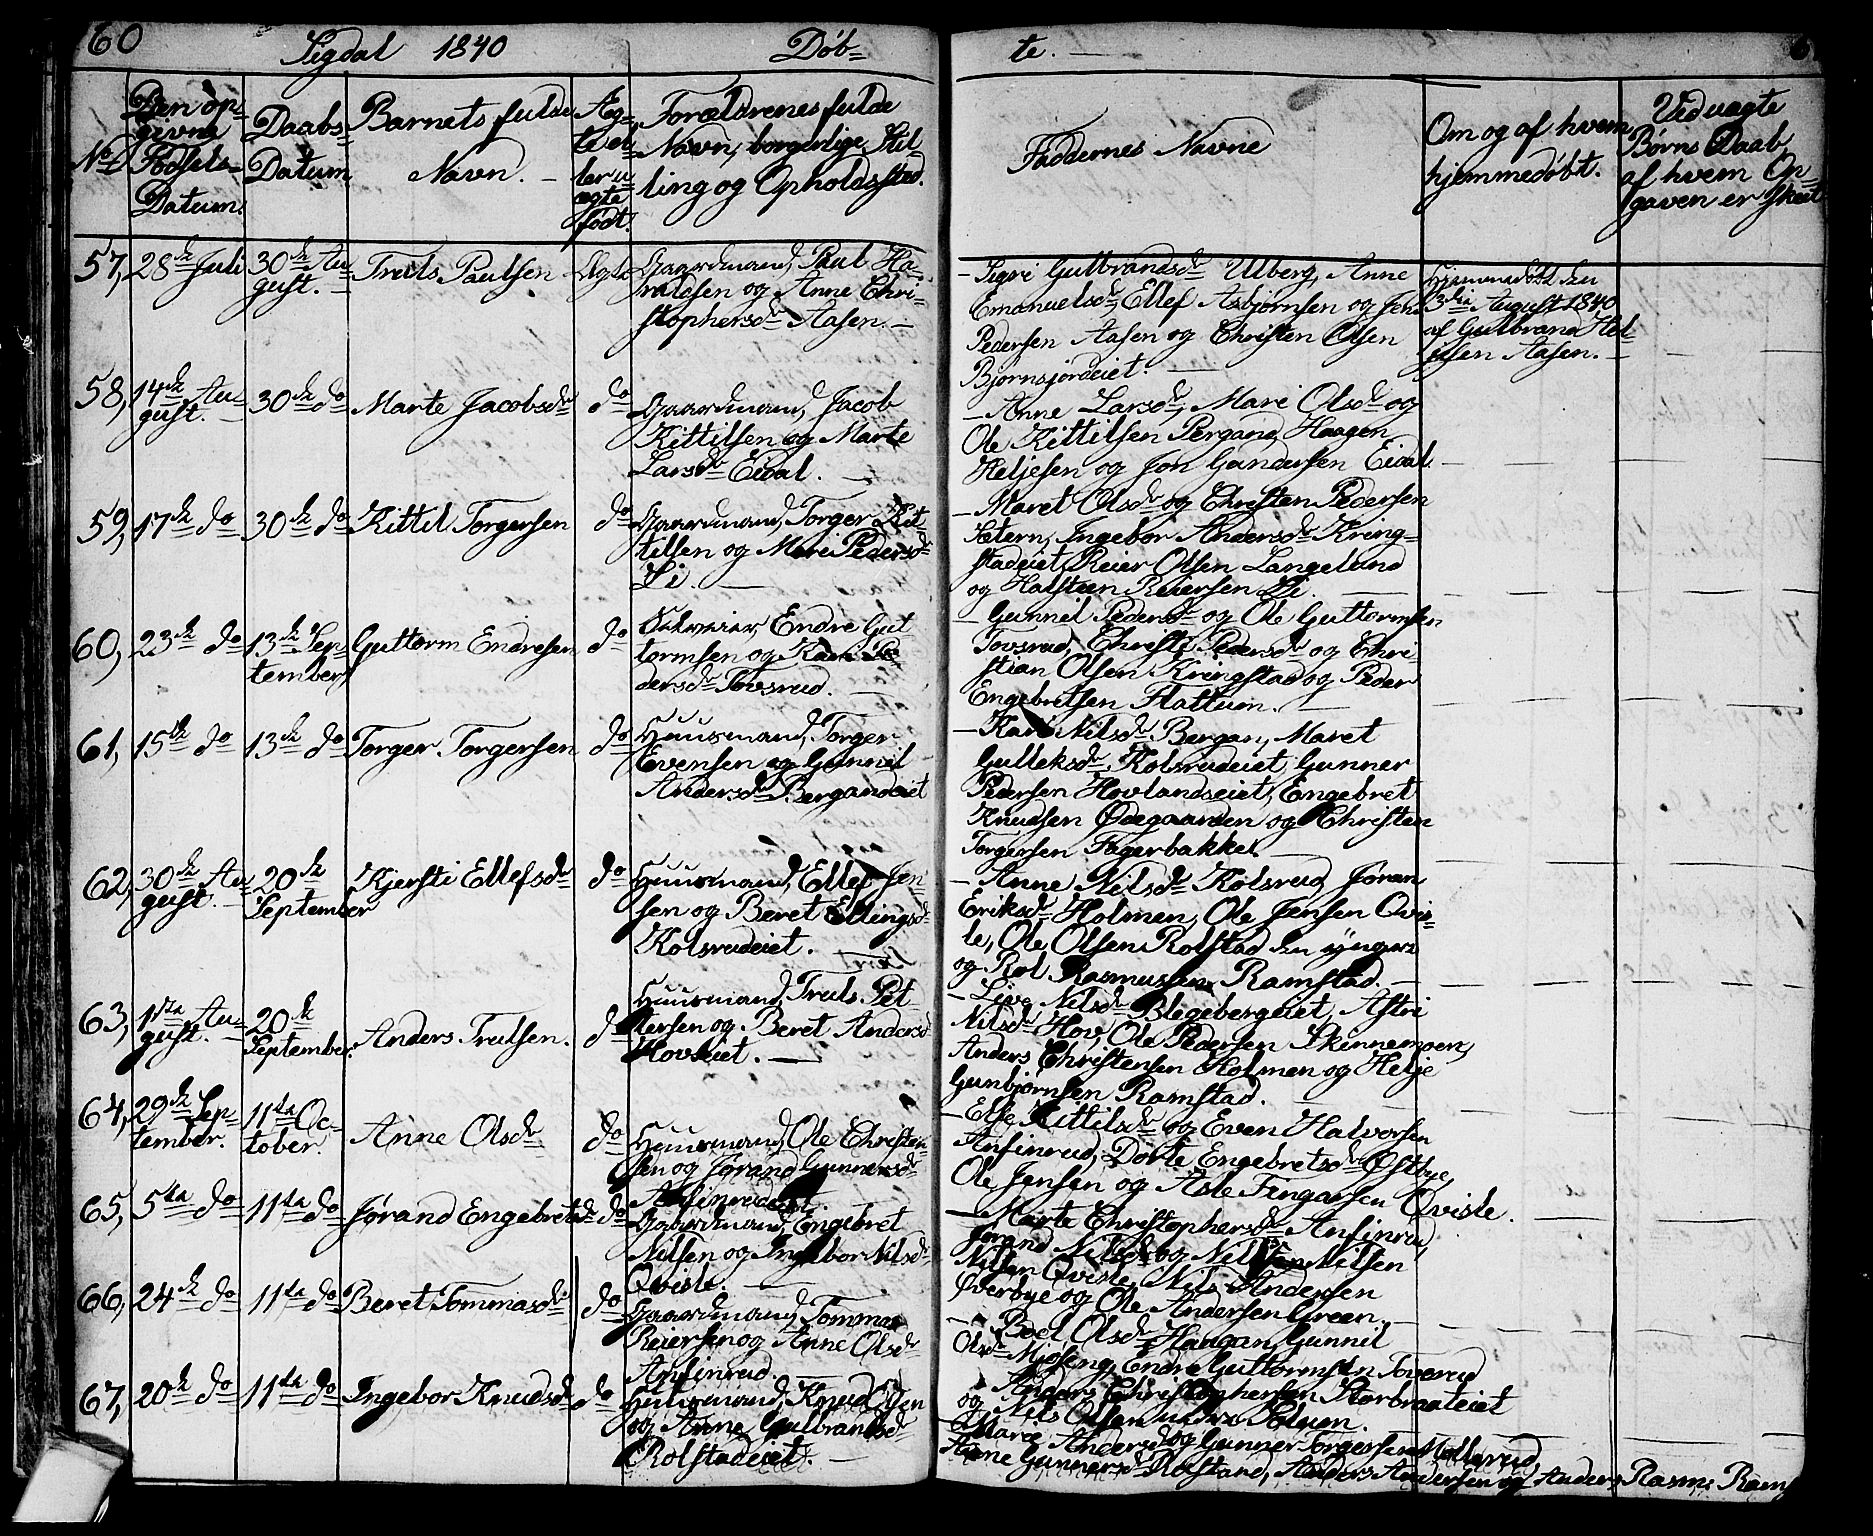 60
Sigdal 1840 Døb=
te. —
No
Den op=
givne
Fødsels=
Datum.
Daabs
Datum
Barnets fulde
Navn. —
Æg=
te el=
ler u=
ægte
født.
Forældrenes fulde
Navn, borgerlige Stil=
ling og Opholdssted.
Faddernes Navne
Om og af hvem
hjemmedøbt.
Ved uægte
Børns Daab,
af hvem Op=
gaven er skeet
57, 28de Juli
30de Au=
gust. —
Truls Paulsen
Ægte
Gaardmand, Paul Ha=
raldsen og Anne Chri=
stophersdr Aasen. —
— Sigri Gulbrandsdr Ulberg, Anne
Emanuelsdr, Ellef Asbjørnsen og Jens
Pedersen Aasen og Christen Olsen
Bjørnsjordeiet. —
Hjemmedøbt den
3die August 1840
af Gulbrand Hel=
gesen Aasen. —
58, 14de Au=
gust. —
30de do
Marte Jacobsdr
do
Gaardmand, Jacob
Kittilsen og Marte
Larsdr Eidal. —
— Anne Larsdr, Mari Olsdr og
Ole Kittilsen Bergand, Haagen
Heljesen og Jon Gundersen Eidal.
59, 17de do
30de do
Kittil Torgersen
do
Gaardmand, Torger Kit
tilsen og Mari Pedersdr
Li. —
— Maret Olsdr og Christen Pedersen
Sætern, Ingebor Andersdr Kring=
stadeiet, Reier Olsen Langelund
og Halsteen Reiersen Li.
60, 23de do
13de Sep=
tember
Guttorm Endresen
do
Selveier, Endre Gut
tormsen og Kari Pe
dersdr Tovsrud. —
— Gunnil Pedersdr og Ole Guttormsen
Tovsrud, Christi Pedersdr og Chri=
stian Olsen Kringstad og Peder
Engebretsen Flattum. —
61, 15de do
13de do
Torger Torgersen
do
Huusmand, Torger
Evensen og Gunnil
Andersdr Bergandeiet
— Kari Nilsdr Bergan, Maret
Gulleksdr Kolsrudeiet, Gunner
Pedersen Hovlandseiet, Engebret
Knudsen Ødegaarden og Christen
Torgersen Fagerbakken
62, 30de Au=
gust. —
20de
September
Kjersti Ellefsdr
do
Huusmand, Ellef Jen=
sen og Beret Ellingsdr
Kolsrudeiet. —
— Anne Nilsdr Kolsrud, Jøran
Eriksdr Holmen, Ole Jensen Qvis=
le, Ole Olsen Rolstad den yngere
og Rol Rasmussen Ramstad. —
63, 1ste Au=
gust. —
20de
September.
Anders Trulsen.
do
Huusmand, Truls Pet
tersen og Beret Andersdr
Hovseiet. —
— Live Nilsdr Blegebergeiet, Astri
Nilsdr Hov, Ole Pedersen Skinnemoen,
Anders Christensen Holmen og Helje
Gunbjørnsen Ramstad. —
64, 29de Sep=
tember.
11te Oc=
tober.
Anne Olsdr
do
Huusmand, Ole Christen
sen og Jørand Gunnersdr
Anfinrudeiet.
— Else Kittilsdr og Even Halvorsen
Anfinrud, Dorte Engebretsdr Østbye,
Ole Jensen og Asle Fingarsen Qvisle.
65, 5te do
11te do
Jørand Engebretsdr
do
Gaardmand, Engebret
Nilsen og Ingebor Nilsdr
Qvisle. —
— Marte Christophersdr Anfinrud,
Jørand Nilsdr og Nils Nilsen
Nilsen Qvisle, Nils Andersen
Øverbye og Ole Andersen Green. —
66, 24de do
11te do
Beret Tommasdr
do
Gaardmand, Tommas
Reiersen og Anne Olsdr
Anfinrud. —
— Boel Olsdr Haagan, Gunnil
Olsdr Mjøseng, Endre Guttormsen Tovsrud
og Anders Christophersen Storbraateiet
og Nils Olsen nedre Solum.
67, 20de do
11te do
Ingebor Knudsdr
do
Huusmand, Knud Olsen
og Anne Gulbrandsdr
Rolstadeiet. —
— Mari Andersdr og Gunner Torgersen Mollerud,
Anne Gunnersdr Rolstand, Anders Andersen og Anders Rasms Ram